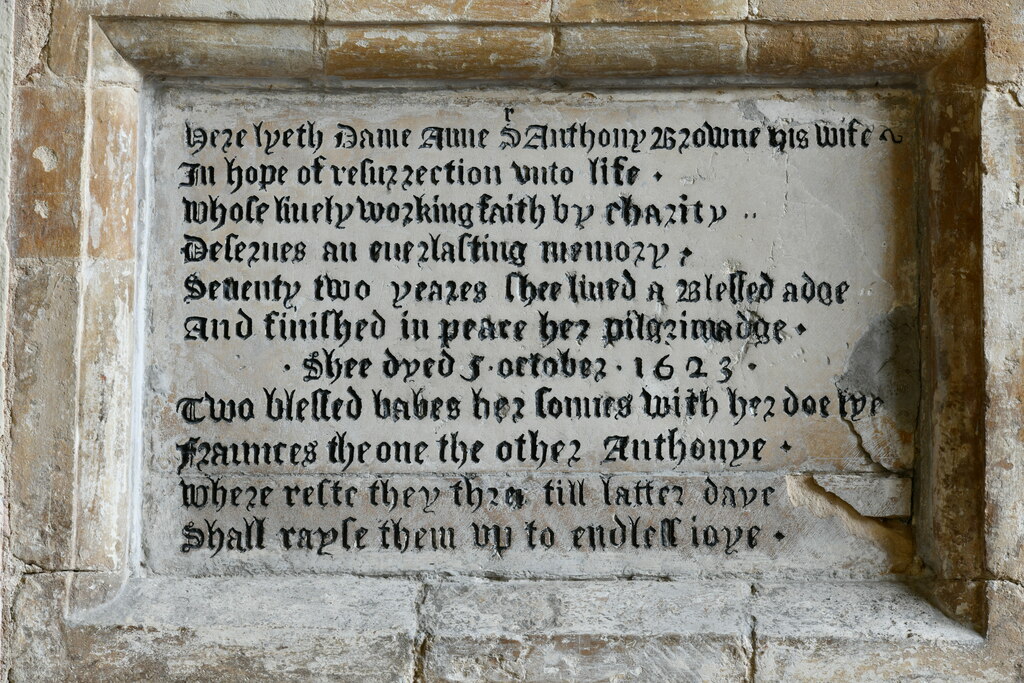 Here lyeth Dame Anne Sʳ Anthony Browne His wife
In hope of resurrection vnto life ·
Whose liuely working faith by charity ..
Deserues an euerlasting memory ;
Seuenty two yeares shee liued a Blessed adge
And finished in peace her pilgrimadge ·
· Shee dyed 5 · october · 1623 ·
Two blessed babes her sonnes with her doe lye
Fraunces the one the other Anthonye ·
Where reste they thre till latter daye
Shall rayse them vp to endless ioye ·